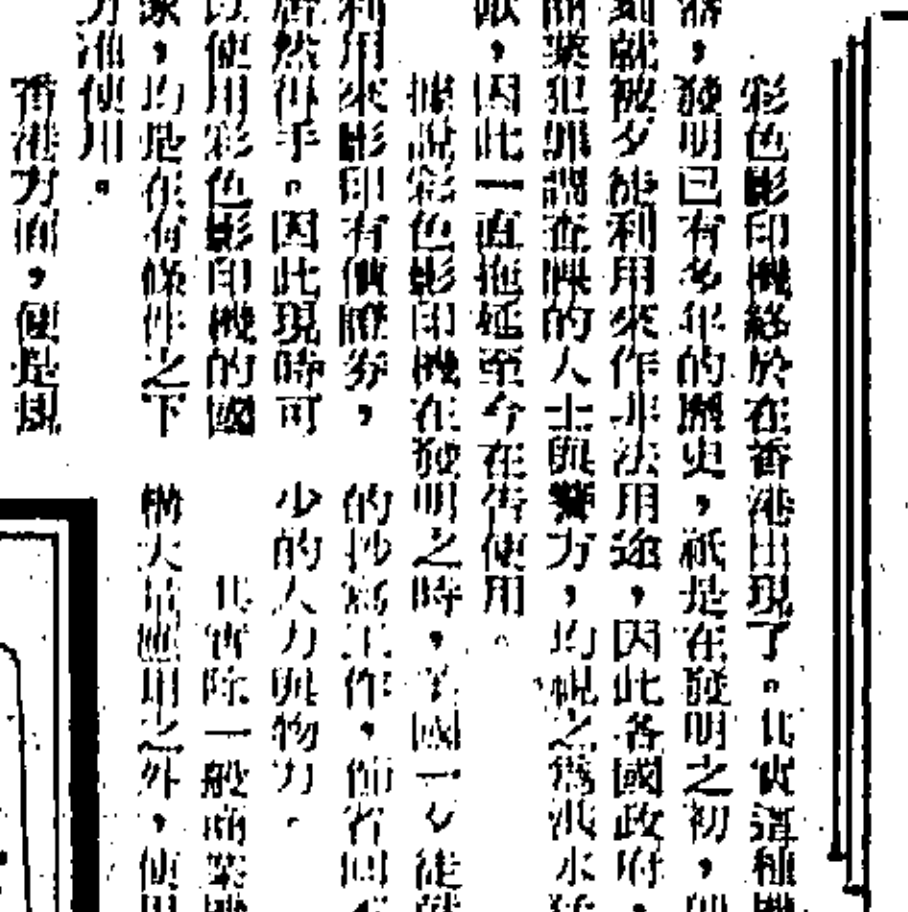 彩色影印機終於在香港出現了。其實這種機
器，發明已有多年的歷史，祇是在發明之初，即
刻就被歹徒利用來作非法用途，因此各國政府，
商業犯罪調查課的人士與警方，均視之爲洪水猛
獸，因此一直拖延至今在告使用。
據說彩色影印機在發明之時，美國一歹徒就
利用來影印有價證券，
居然得手。因此現時可
以使用彩色影印機的國
家，均是在有條件之下
方准使用。
香港方面，便是規
的抄寫工作，節省回不
少的人力與物力。
其實除一般商業機
構大量應用之外，使用